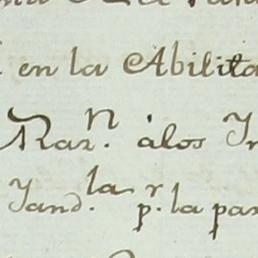 en la Abilita
Raz.ⁿ álos Yn
Yand.ˡᵃ p.ʳ la par